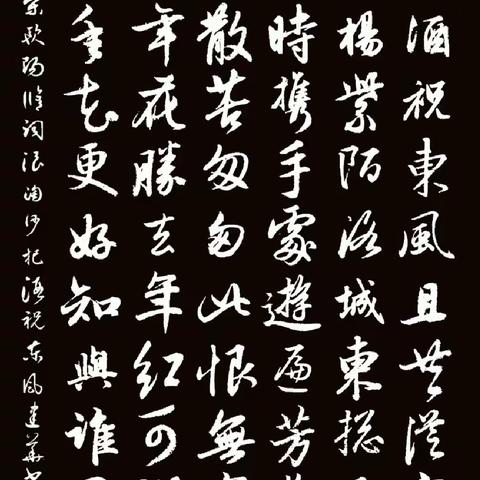 酒祝東風且共從
楊紫陌洛城東總
時携手處遊遍芳
散苦匆匆此恨無
年花勝去年紅可
年花更好知與誰
宋歐陽修詞浪淘沙把酒祝東風建華書